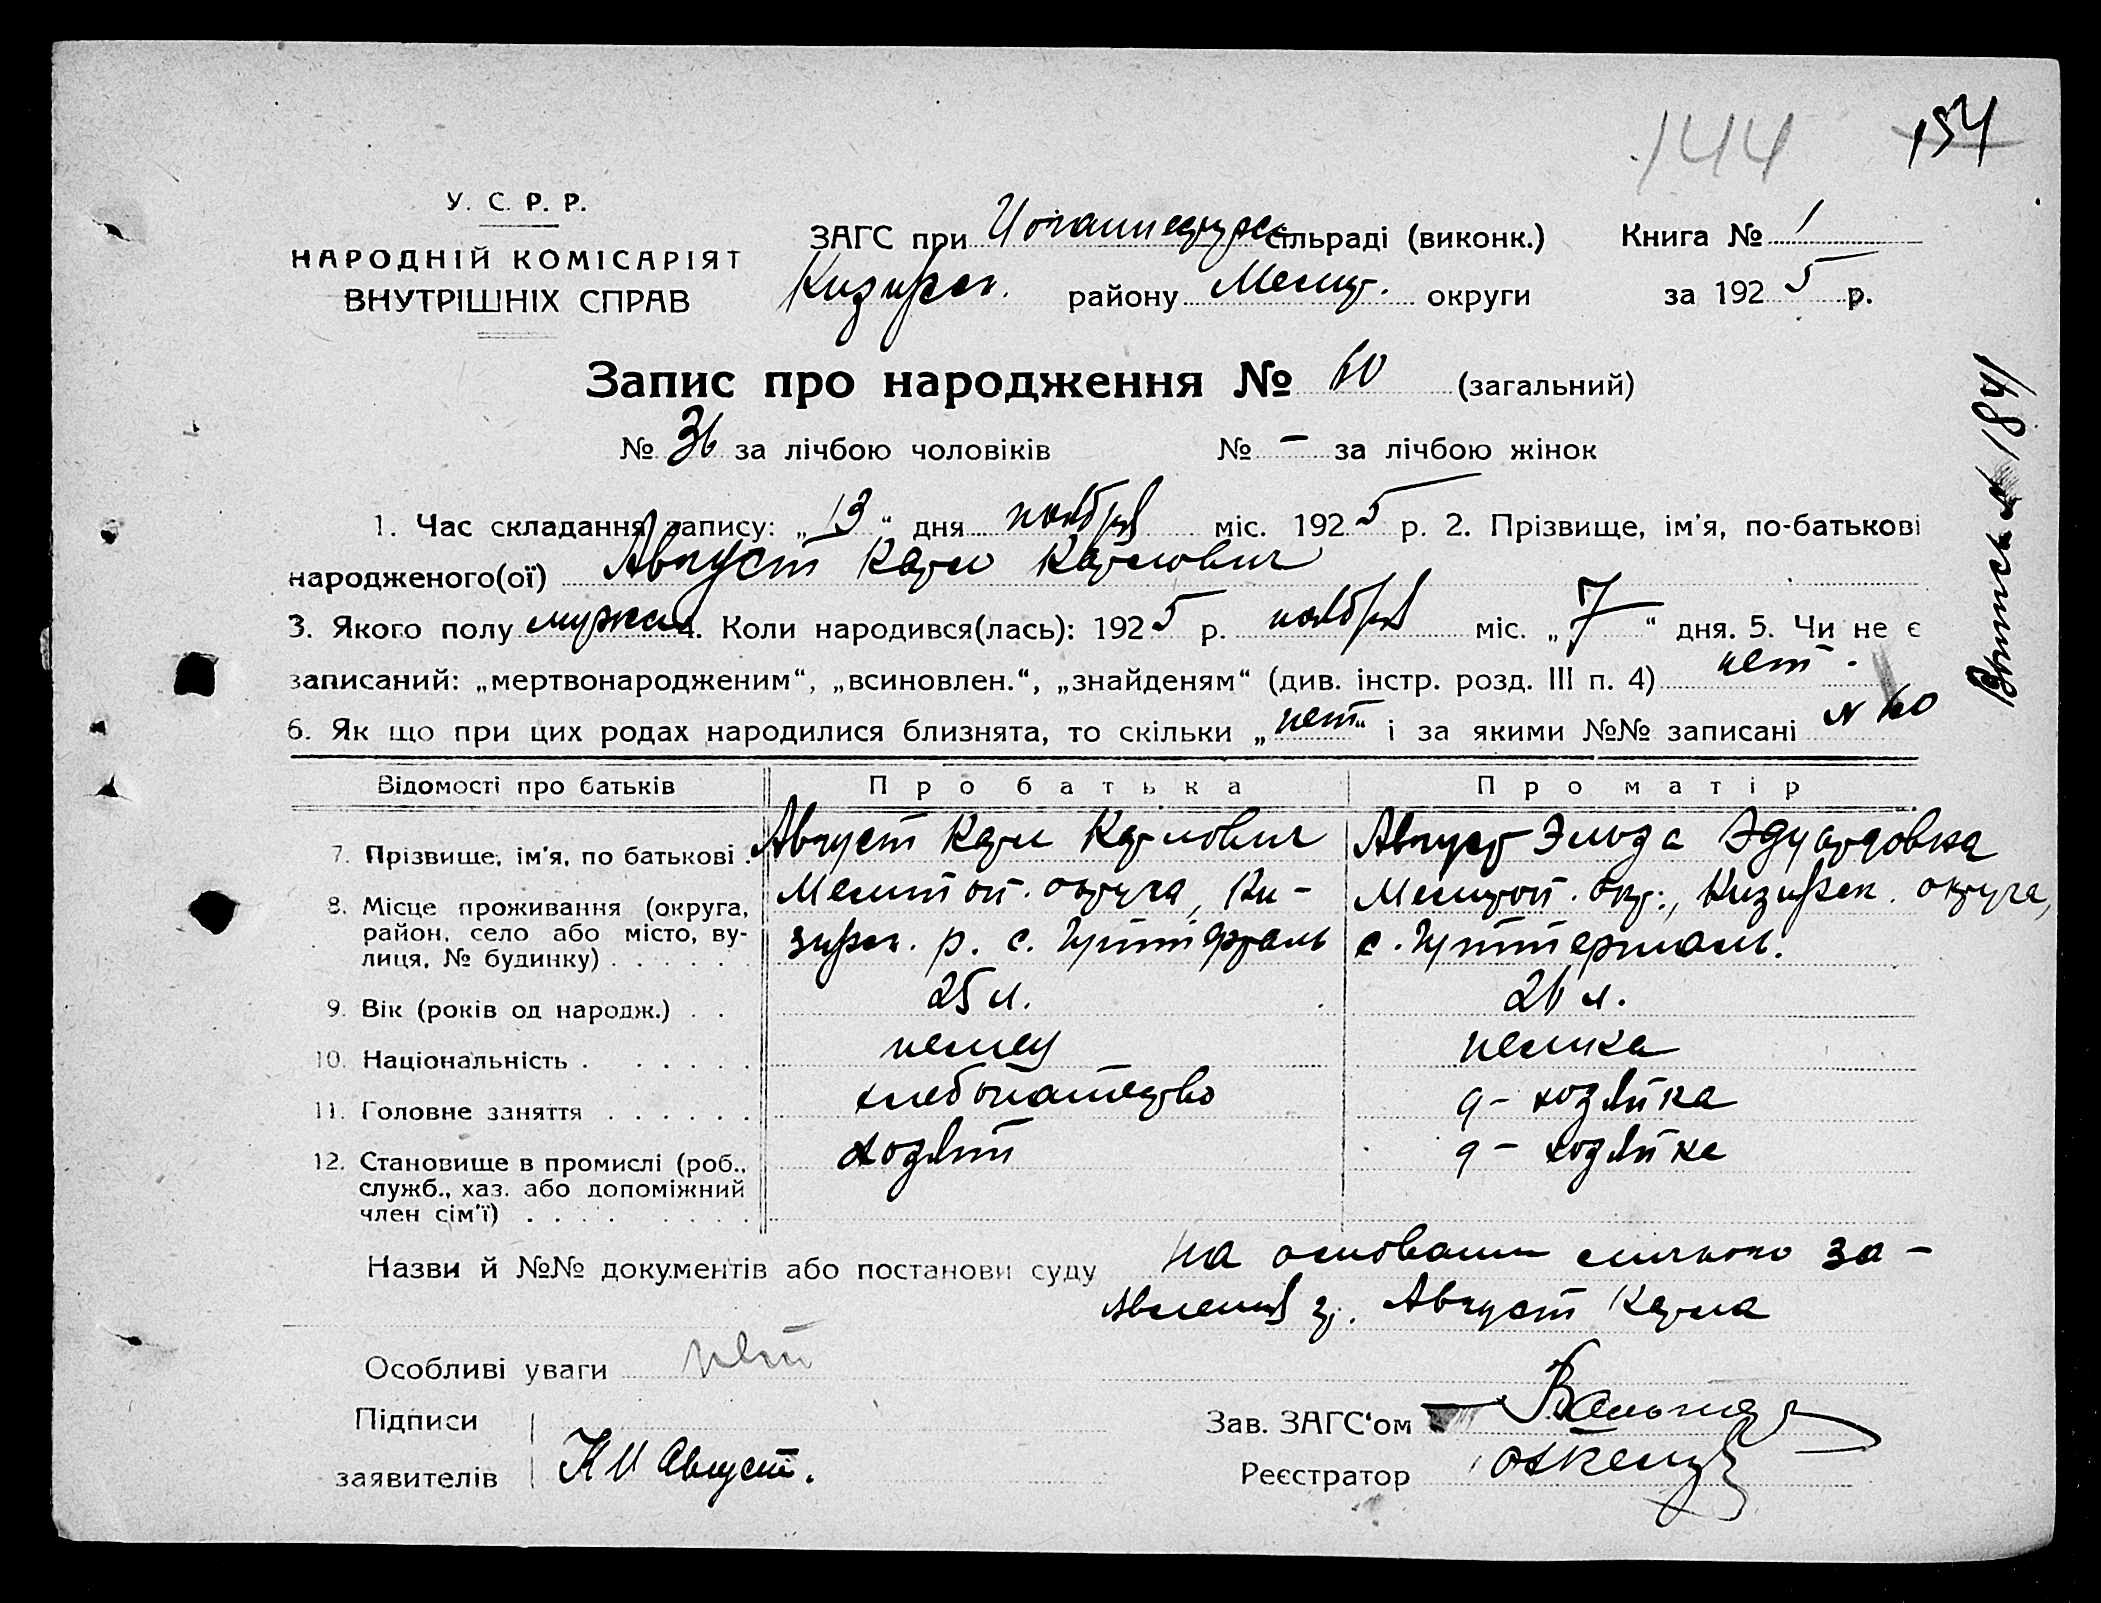 144 154
У. С. Р. Р.
НАРОДНІЙ КОМІСАРІЯТ
ВНУТРІШНІХ СПРАВ
ЗАГС при сільраді (виконк.) Книга № 1
району округи за 1925 р.
Запис про народження № 60 (загальний)
№ 36 за лічбою чоловіків № – за лічбою жінок
1. Час складання запису: „13“ дня ноября міс. 1925 р. 2. Прізвище, ім'я, по-батькові
народженого(ої) Август Карл Карлович
3. Якого полу мужск 4. Коли народився(лась): 1925 р. ноября міс. „7“ дня. 5. Чи не є
записаний: „мертвонародженим“, „всиновлен.“, „знайденям“ (див. інстр. розд. III п. 4) нет.
6. Як що при цих родах народилися близнята, то скільки „нет“ і за якими №№ записані N 60
Відомості про батьків Про батька Про матір
7. Прізвище, ім'я, по батькові . Август Карл Карлович Август Эльда Эдуардовна
8. Місце проживання (округа, Мелитоп. округа, Ки- Мелитоп. окр., округа,
район, село або місто, ву- р. с. с.
лиця, № будинку)
9. Вік (років од народж.) . . 25 л. 26 л.
10. Національність . немец немка
11. Головне заняття хлебопашество д-хозяйка
12. Становище в промислі (роб., хозяин д-хозяйка
служб., хаз. або допоміжний
член сім'ї)
Назви й №№ документів або постанови суду На основании личного за-
явления гр. Август Карла
Особливі уваги нет
Підписи Зав. ЗАГС'ом
заявителів Август. Реєстратор